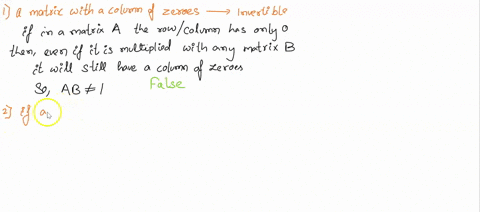 1) A matrix with a column of zeroes → Invertible
if in a matrix A the row/column has only 0
then, even if it is multiplied with any matrix B
it will still have a column of zeroes
So, AB ≠ I False
2) if a